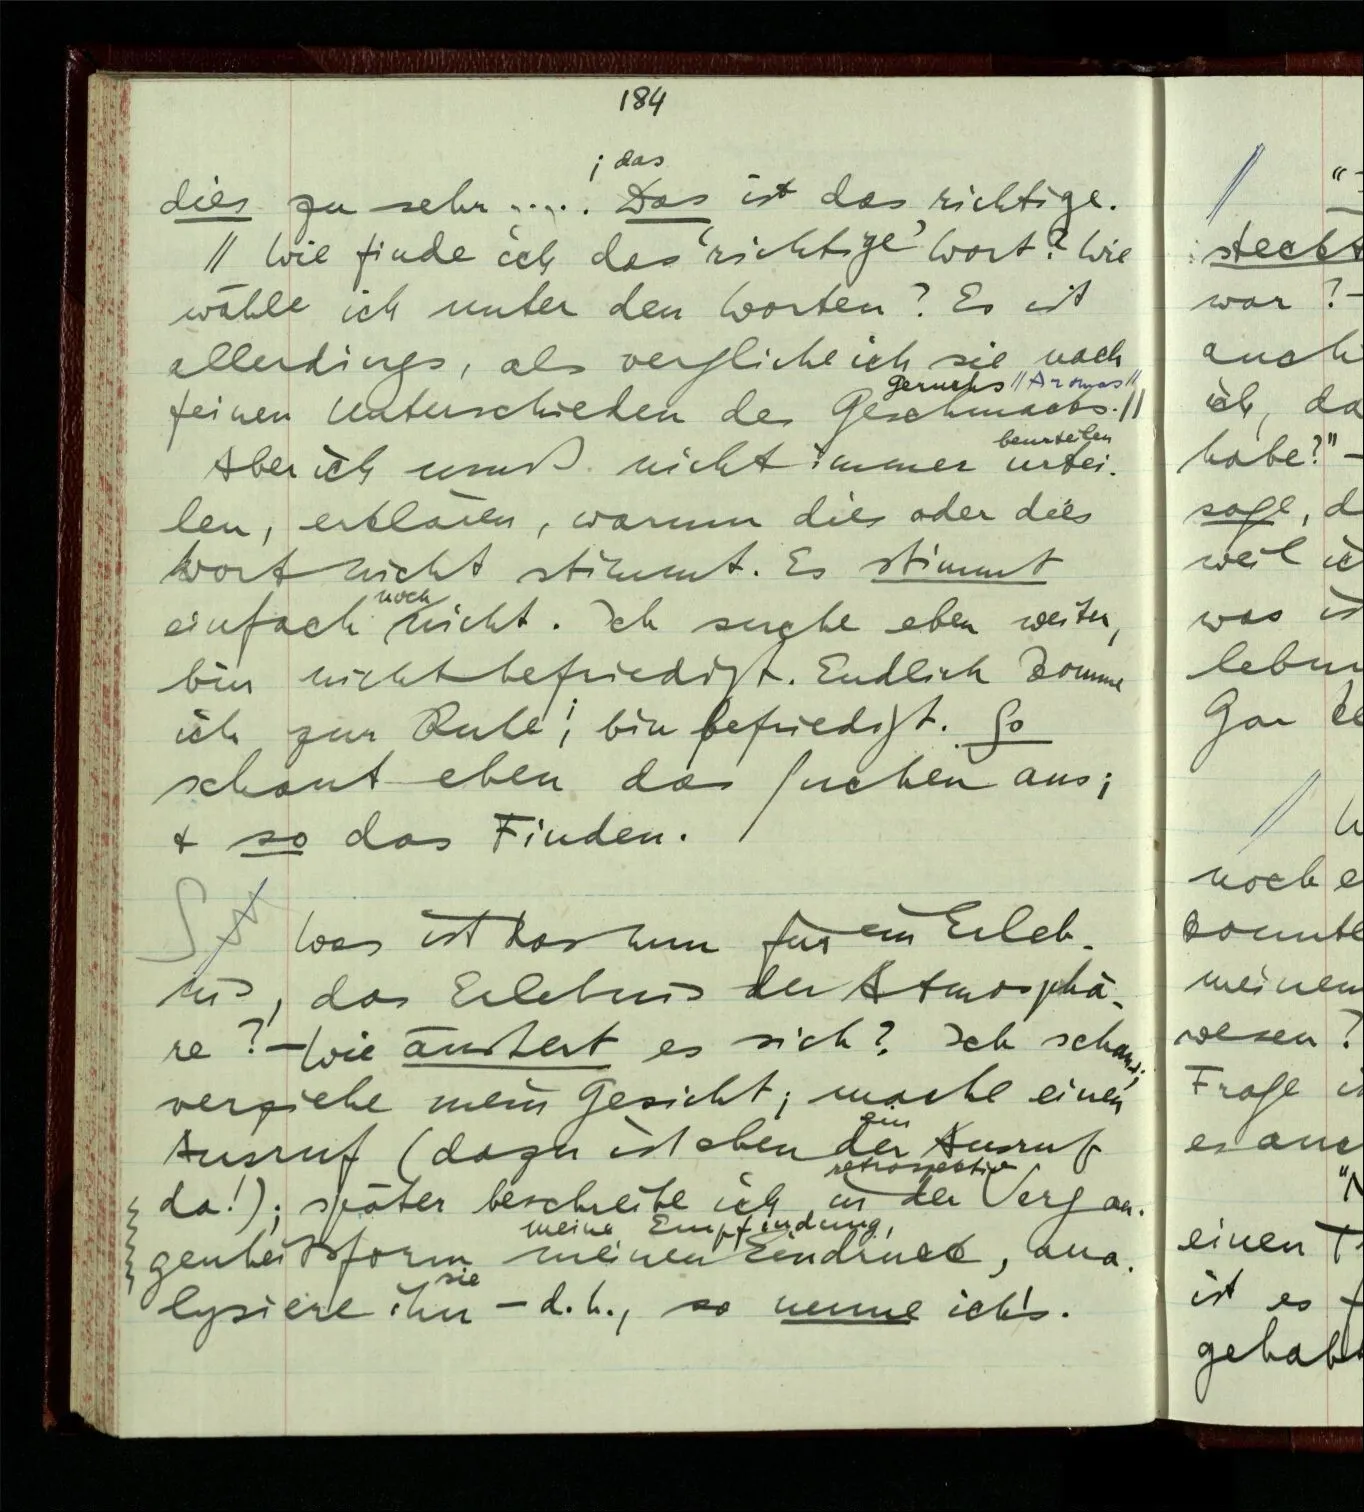 184
; das
dies zu sehr ..... Das ist das richtige.
// Wie finde ich das ‘richtige’ Wort? Wie
wähle ich unter den Worten? Es ist
allerdings, als vergliche ich sie nach
Geruchs // Aromas //
feinen Unterschieden des Geschmacks. //
beurteilen
Aber ich muß nicht immer urtei-
len, erklären, warum dies oder dies
Wort nicht stimmt. Es stimmt
noch
einfach nicht. Ich suche eben weiter,
bin nicht befriedigt. Endlich komme
ich zur Ruhe; bin befriedigt. So
schaut eben das Suchen aus;
+ so das Finden.
S
Was ist das nun für ein Erleb-
nis, das Erlebnis der Atmosphä-
re? – Wie äußert es sich? Ich schau;
verziehe mein Gesicht; mache einen
ein
Ausruf (dazu ist eben der Ausruf
retrospektiv
da!); später beschreibe ich in der Vergan-
meine Empfindung,
genheitsform meinen Eindruck, ana-
sie
lysiere ihn – d.h., so nenne ich's.
//
steckt
war? –
auch
ich, da
habe?" –
sage, d
weil ic
was is
lebn
Gar ke
// W
noch e
konnte
meinen
wesen?
Frage i
es auc
"N
einen T
ist es f
gehabt